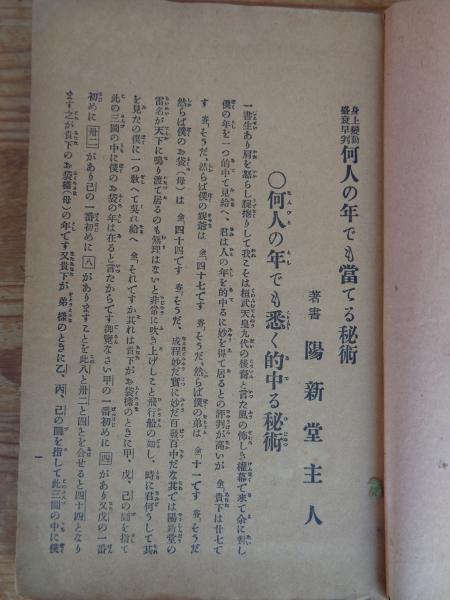 身上變動
盛衰早判
何人の年でも當てる秘術
著書 陽新堂主人
〇何人の年でも悉く的中る秘術
一書生あり肩を怒らし腕捲りして我こそは桓武天皇九代の後裔と言た風の怖しき權幕で來て余に對し
僕の年を一つ的中て見給へ、君は人の年を的中るに妙を得て居るとの評判が高いが 余、貴下は廿七で
す 書、そうだ、然らば僕の親爺は 余、四十七です 書、そうだ、然らば僕の弟は 余、十一です 書、そうだ
然らば僕のお袋(母)は 余、四十四です 書、そうだ、成程妙だ實に妙だ百發百中だな其では陽新堂の
雷名が天下に鳴り渡て居るのも無理はないと非常に吹き上げしこと飛行船の如し、時に君何うして其
を見たの僕に一つ敎へて吳れ給へ 余、それですか其れは貴下がお袋樣のときに甲、戊、己の圖を指て
此の三圖の中に僕のお袋の年は在ると言たからです御覽なさい甲の一番初めに 四 があり又戊の一番
初めに 卅二 があり己の一番初めに 八 がありますことを此八と卅二と四とを合せると四十四となり
ます之が貴下のお袋樣(母)の年です又貴下が弟樣のときに乙、丙、己の圖を指して此三圖の中に僕
一